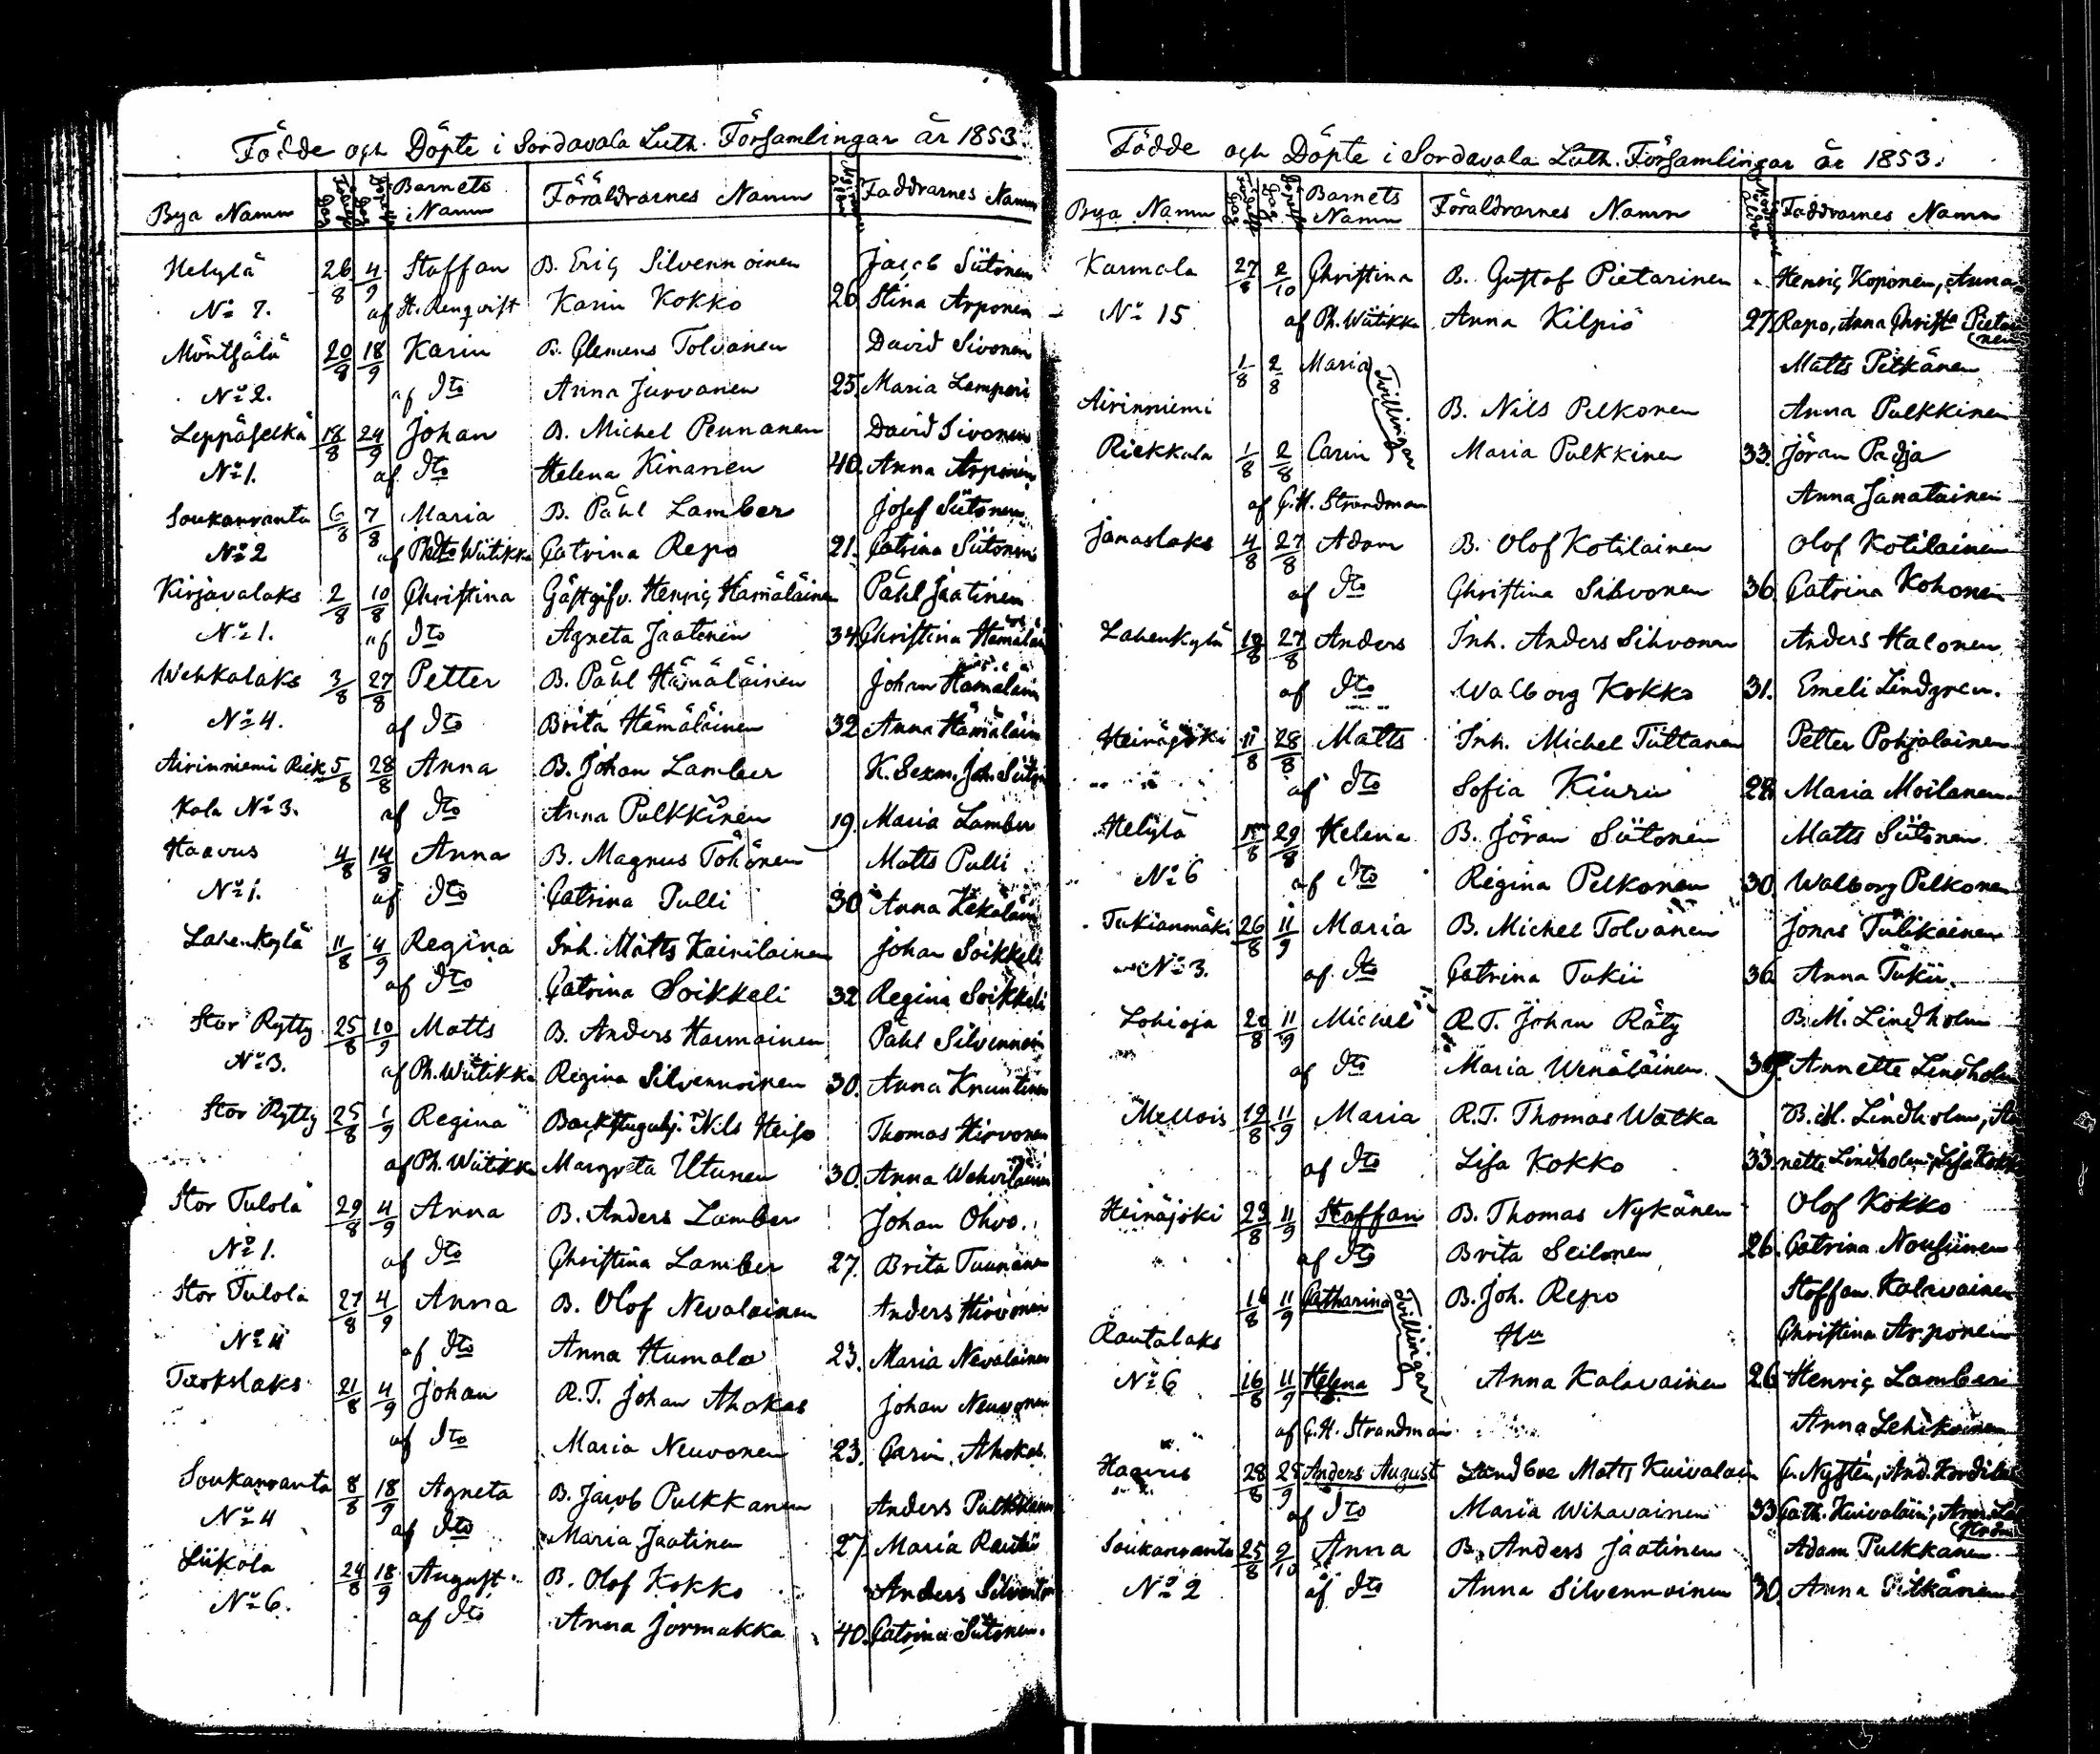 Födde och Döpte i Sordavala Luth. Församlingar år 1853.
Bya Namn Barnets Namn Föräldrarnes Namn Faddrarnes Namn
Helylä 26/8 4/9 Staffan B. Eric Silvennoinen Jacob Siitonen
No 7. af H. Renqvist Karin Kokko 26 Stina Arponen
Möntsälä 20/8 18/9 Karin B. Clemens Tolvanen David Sivonen
No 2. af Dto Anna Jurvanen 25. Maria Lemperi
Leppäselkä 18/8 24/9 Johan B. Michel Pennanen David Sivonen
No 1. af Dto Helena Kinanen 40. Anna Arponen
Soukanranta 6/8 7/8 Maria B. Påhl Lamber Josef Siitonen
No 2 af Ph. Wiitikka Catrina Repo 21. Catrina Siitonen
Kirjavalaks 2/8 10/8 Christina Gästgifv. Henric Hämäläinen Påhl Jaatinen
No 1. af Dto Agneta Jaatinen 34. Christina Hämäläinen
Wehkalaks 3/8 27/8 Petter B. Påhl Hämäläinen Johan Hämäläin
No 4. af Dto Brita Hämäläinen 32 Anna Hämäläin
Airinniemi Riek 5/8 28/8 Anna B. Johan Lamber K. Sexm. Joh. Siiton
kala No 3. af Dto Anna Pulkkinen 19. Maria Lamber
Haavus 4/8 14/8 Anna B. Magnus Töhönen Matts Pulli
No 1. af Dto Catrina Pulli 30 Anna Kekäläin
Lahenkylä 11/8 4/9 Regina Inh. Matts Kainilainen Johan Soikkeli
af Dto Catrina Soikkeli 32 Regina Soikkeli
Stor Rytty 25/8 10/9 Matts B. Anders Harmainen Påhl Silvennoin
No 3. af Ph. Wiitikka Regina Silvennoinen 30. Anna Knuutinen
Stor Rytty 25/8 1/9 Regina Backstuguhj. Nils Heiso Thomas Hirvonen
af Ph. Wiitikka Margreta Utunen 30. Anna Wehviläinen
Stor Tulola 29/8 4/9 Anna B. Anders Lamber Johan Ohvo.
No 1. af Dto Christina Lamber 27. Brita Tuunanen
Stor Tulola 27/8 4/9 Anna B. Olof Nevalainen Anders Hirvonen
No 4 af Dto Anna Humala 23. Maria Nevalainen
Tuokslaks 21/8 4/9 Johan R.T. Johan Ahokas Johan Neuvonen
af Dto Maria Neuvonen 23. Carin Ahokas
Soukanranta 8/8 18/9 Agneta B. Jacob Pulkkanen Anders Pulkkanen
No 4 af Dto Maria Jaatinen 27 Maria Rautio
Liikola 24/8 18/9 August B. Olof Kokko Anders Silvento
No 6. af Dto Anna Jormakka 40. Catrina Siitonen.
Födde och Döpte i Sordavala Luth. Församlingar år 1853.
Bya Namn Barnets Namn Föräldrarnes Namn Faddrarnes Namn
Karmala 27/8 2/10 Christina B. Gustof Pietarinen Henric Koponen, Anna
No 15 af Ph. Wiitikka Anna Kilpiö 27 Repo, Anna Christa Pietarinen
1/8 2/8 Maria Tvillingar Matts Pitkänen
Airinniemi B. Nils Pelkonen Anna Pulkkinen
Riekkala 1/8 2/8 Carin Maria Pulkkinen 33. Jöran Padja
af C.H. Strandman Anna Janatainen
Janaslaks 4/8 27/8 Adam B. Olof Kotilainen Olof Kotilainen
af Dto Christina Sihvonen 36. Catrina Kohonen
Lahenkylä 18/8 27/8 Anders Inh. Anders Sihvonen Anders Halonen
af Dto Walborg Kokko 31. Emeli Lindgren.
Heinäjoki 11/8 28/8 Matts Inh. Michel Tiittanen Petter Pohjolainen
af Dto Sofia Kiuru 28 Maria Moilanen
Helylä 15/8 29/8 Helena B. Jöran Siitonen Matts Siitonen
No 6 af Dto Regina Pelkonen 30. Walborg Pelkonen
Tukianmäki 26/8 11/9 Maria B. Michel Tolvanen Jonas Tiilikainen
No 3. af Dto Catrina Tukii 36 Anna Tukii.
Lohioja 28/8 11/9 Michel R.T. Johan Räty B.M. Lindholm
af Dto Maria Wenäläinen Annette Lindholm
Mellois 19/8 11/9 Maria R.T. Thomas Watka B.M. Lindholm, An
af Dto Lisa Kokko 33. nette Lindholm, Lisa Kokk
Heinäjoki 23/8 11/9 Staffan B. Thomas Nykänen Olof Kokko
af Dto Brita Seilonen 26. Catrina Nousiinen
16/8 11/9 Catharina Tvillingar B. Joh. Repo Staffan Kalavainen
Rautalaks Hu Christina Arponen
No 6 16/8 11/9 Helena Anna Kalavainen 26 Henric Lamberi
af C.H. Strandman Anna Lehikoinen
Haavus 28/8 25/9 Anders August Landboe Matts Kuivalain C. Nysten, And.
af Dto Maria Wihavainen 33 Cath. Kuivalain, Anna
Soukanranta 25/8 9/10 Anna B. Anders Jaatinen Adam Pulkkanen
No 2 af Dto Anna Silvennoinen 30. Anna Pitkänen